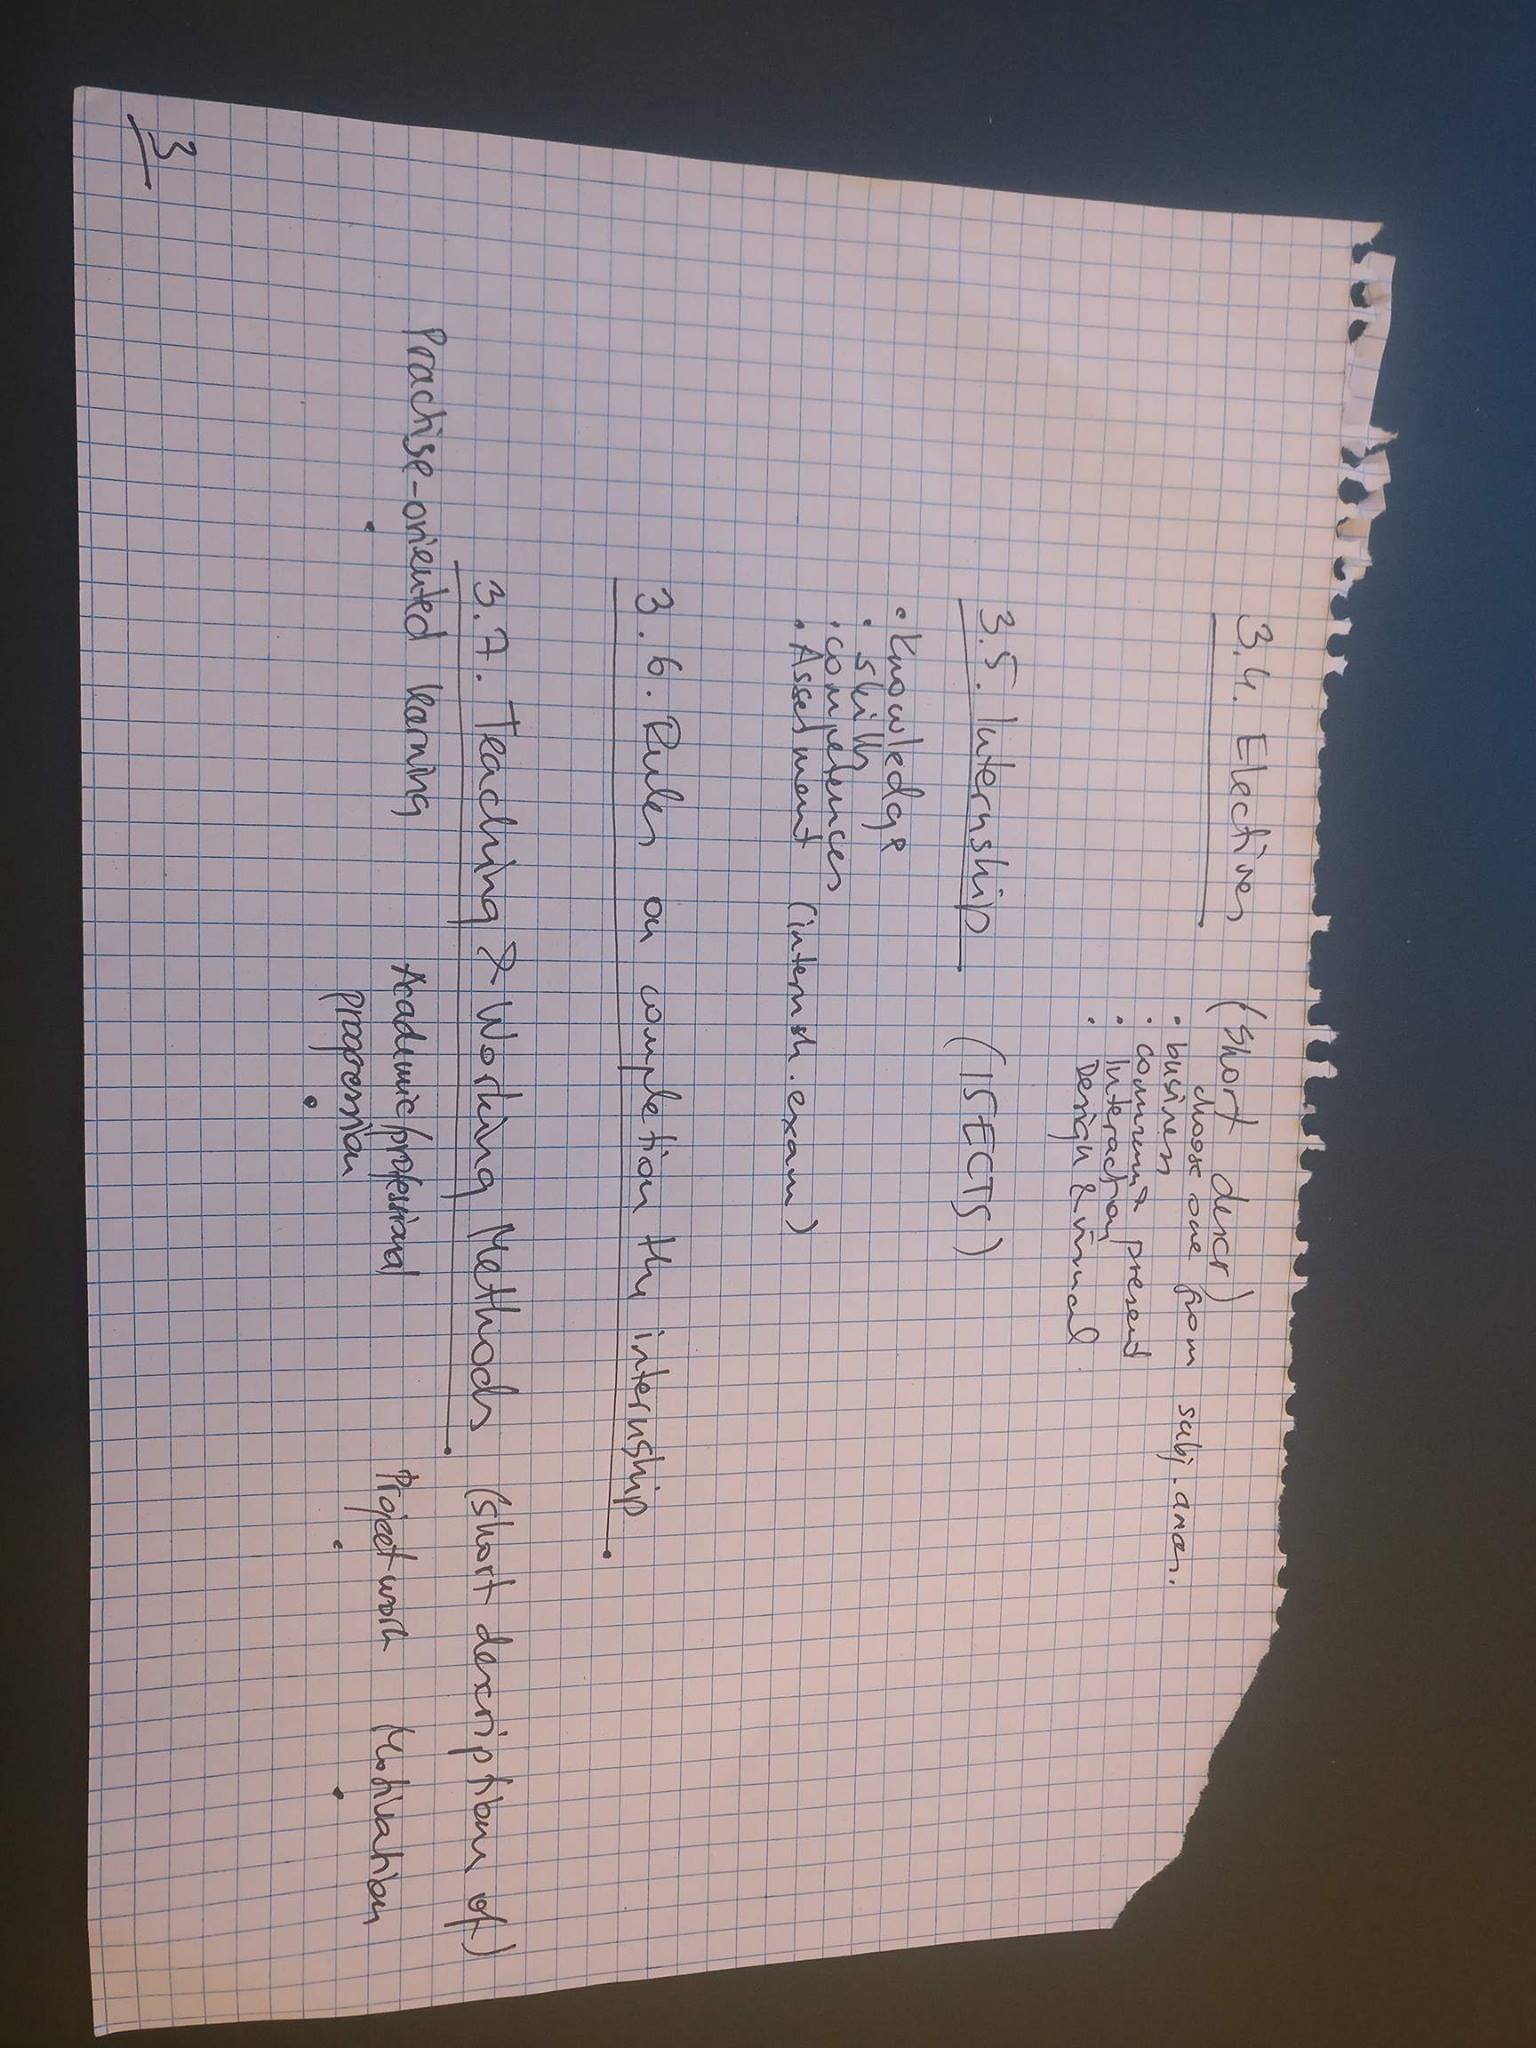 3.4. Electives (short descr)
choose one from subj. areas.
• business
• commun & present
• Interaction
• Design & visual
3.5. Internship (15 ECTS)
• Knowledge
• skills
• competences
• Assesment (internsh. exam)
3.6. Rules on completion the internship
3.7. Teaching & Working Methods (short description of)
Practise-oriented learning
Academic/professional
progression
Project work
Motivation
3